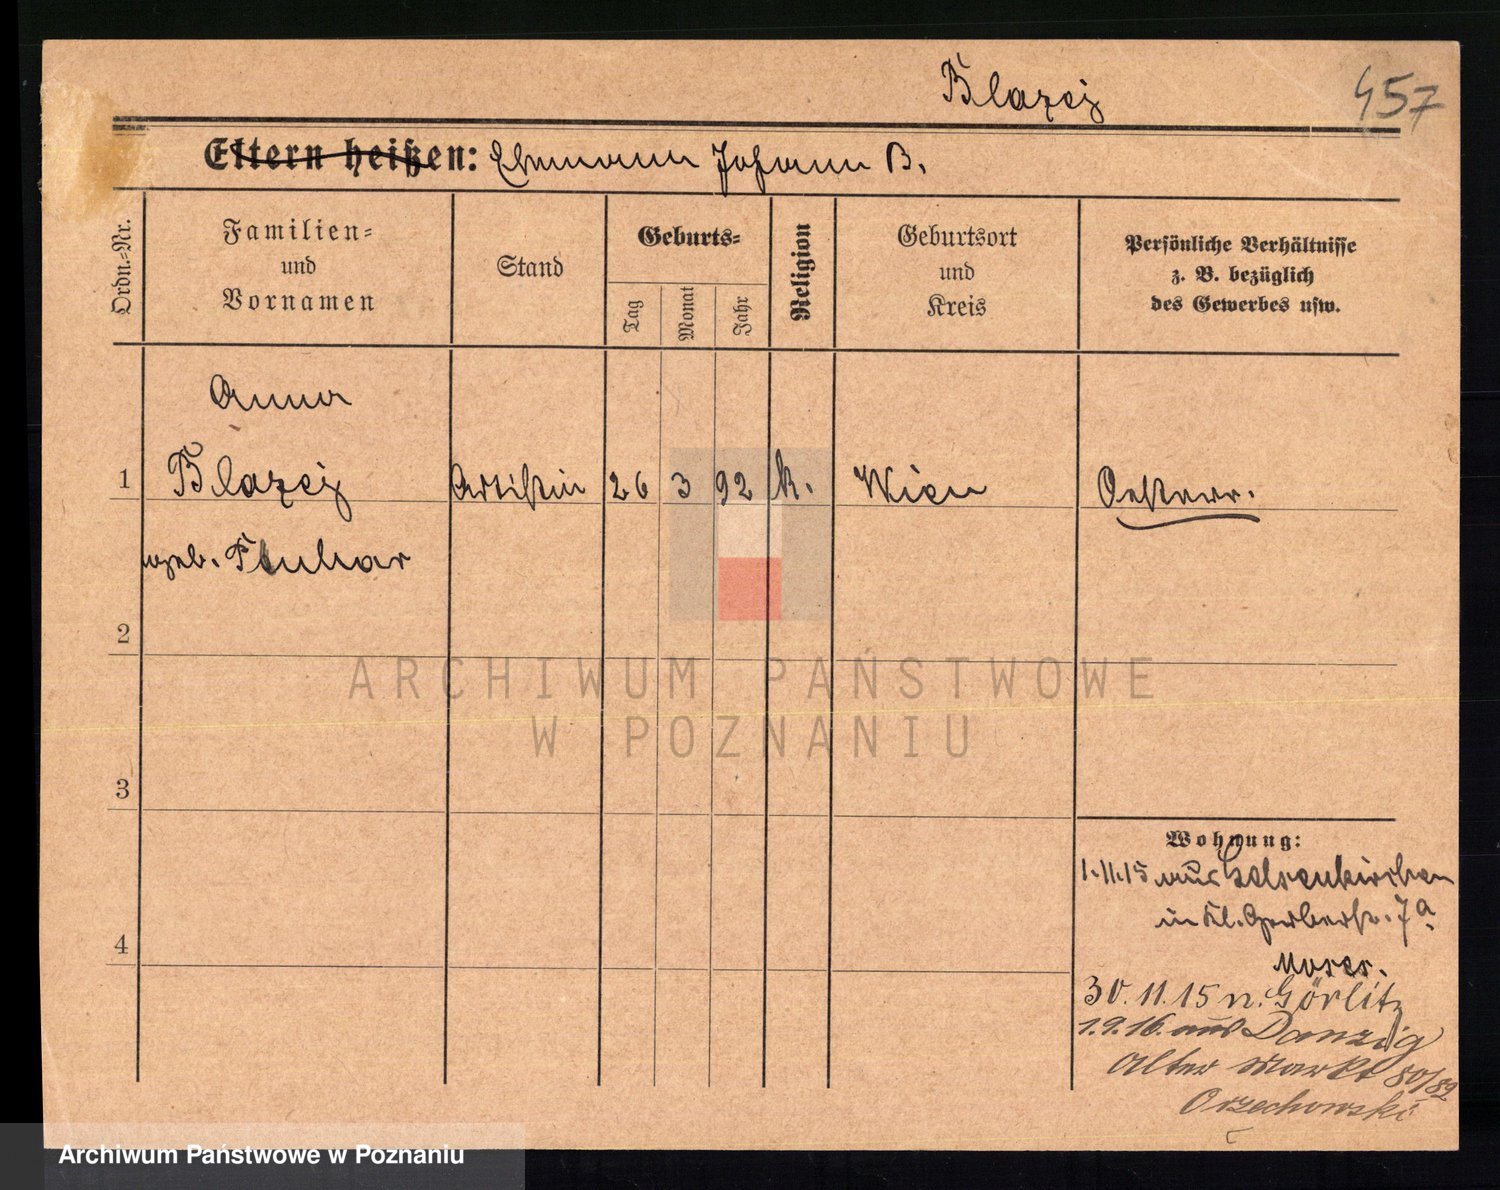 Blazej
457
Eltern heißen: Ehemann Johann B.
Ordn.-Nr.
Familien-
und
Vornamen
Stand
Geburts-
Tag
Monat
Jahr
Religion
Geburtsort
und
Kreis
Persönliche Verhältnisse
z. B. bezüglich
des Gewerbes usw.
Anna
1 Blazej Artistin 26 3 92 k. Wien Oesterr.
geb.
2
3
4
Wohnung:
1.11.15 aus Gelsenkirchen
in Kl. Gerberstr. 7a
Moses.
30.11.15 n. Görlitz
1.9.16. aus Danzig
Alter Markt 80/82
Orzechowski
ARCHIWUM PAŃSTWOWE
W POZNANIU
Archiwum Państwowe w Poznaniu